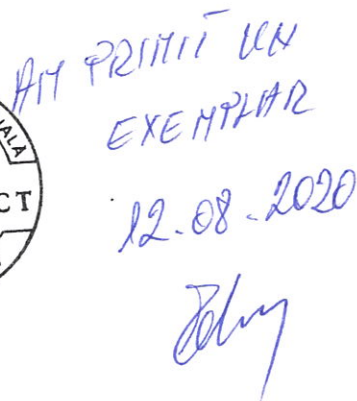 AM PRIMIT UN
EXEMPLAR
12.08.2020
CT